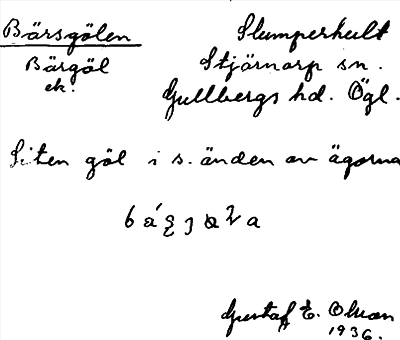 Bärsgölen Slumperhult
Bärgöl Stjärnorp sn.
ek. Gullbergs hd. Ögl.
Liten göl i s. änden av ägorna
Gustaf E. Olson
1936.